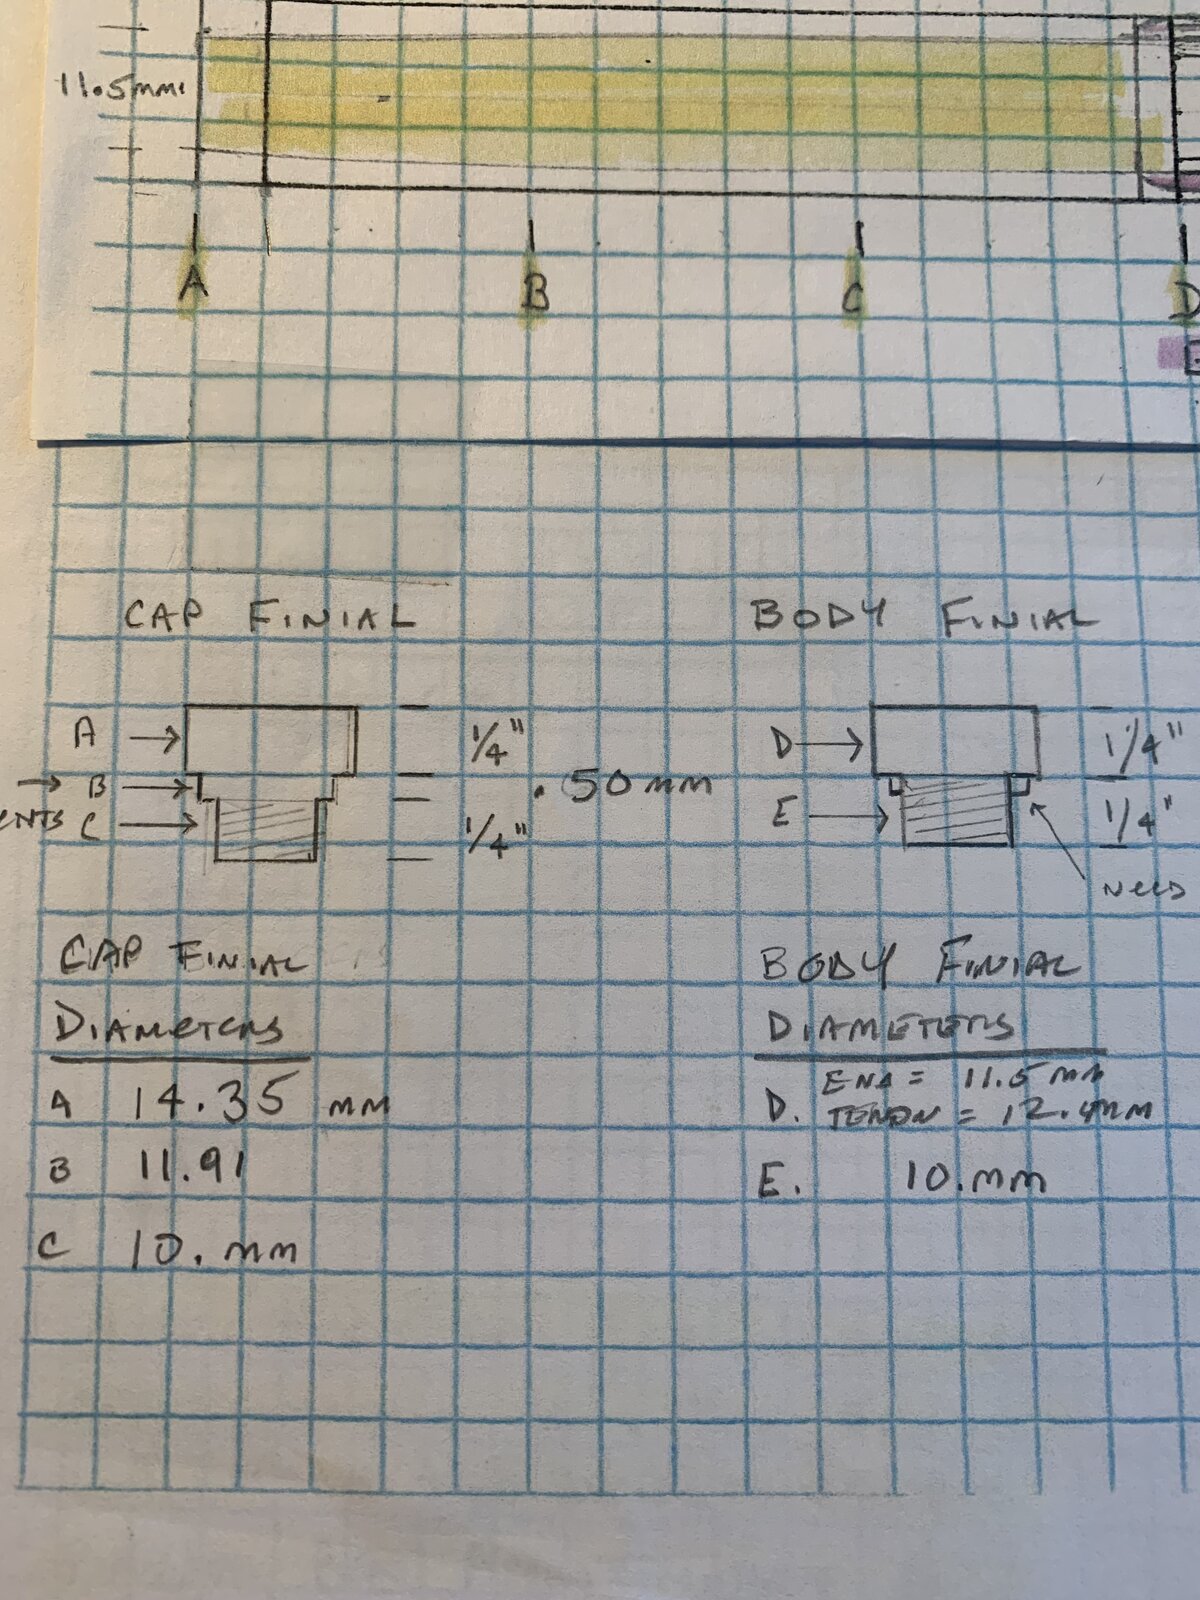 11.5mm
A B C D
CAP FINIAL
BODY FINIAL
A → 1/4"
→ B → .50mm
C → 1/4"
D → 1/4"
E → 1/4"
NEED
CAP FINIAL
DIAMETERS
A 14.35 mm
B 11.91
C 10. mm
BODY FINIAL
DIAMETERS
D. END = 11.5 mm
TENON = 12.4mm
E. 10.mm